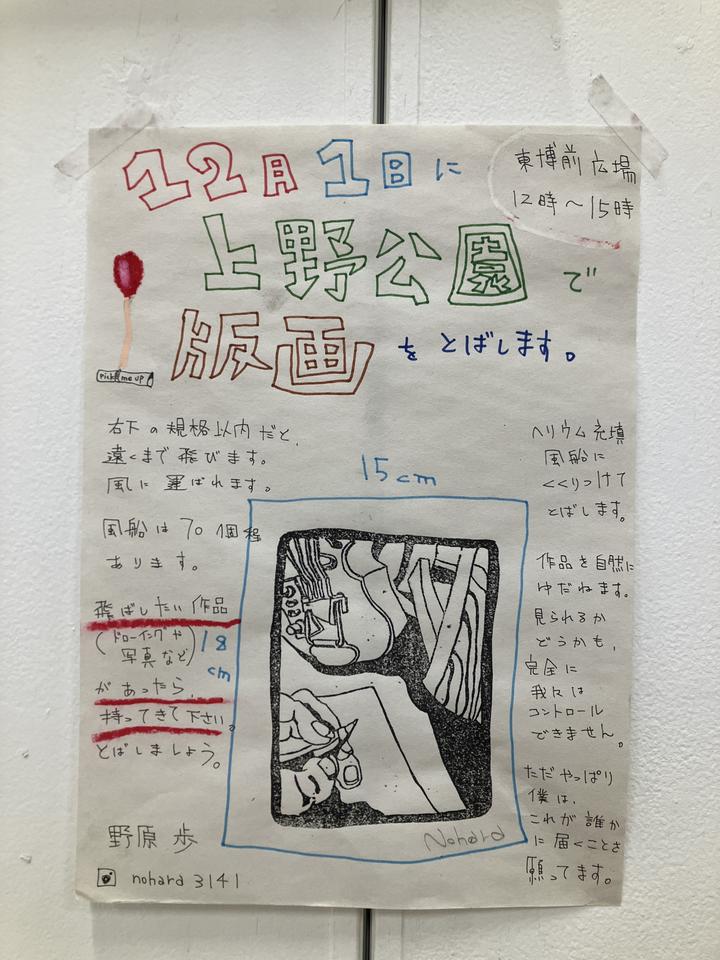 12月1日に
東博前広場
12時〜15時
上野公園で
版画をとばします。
Pick me up
右下の規格以内だと、
遠くまで飛びます。
風に運ばれます。
風船は70個程
あります。
飛ばしたい作品
(ドローイングや
写真など)
があったら、
持ってきて下さい。
とばしましょう。
野原歩
nohara 3141
15cm
18
cm
Nohara
ヘリウム充填
風船に
くくりつけて
とばします。
作品を自然に
ゆだねます。
見られるか
どうかも、
完全に
我々は
コントロール
できません。
ただやっぱり
僕は、
これが誰か
に届くことを
願ってます。